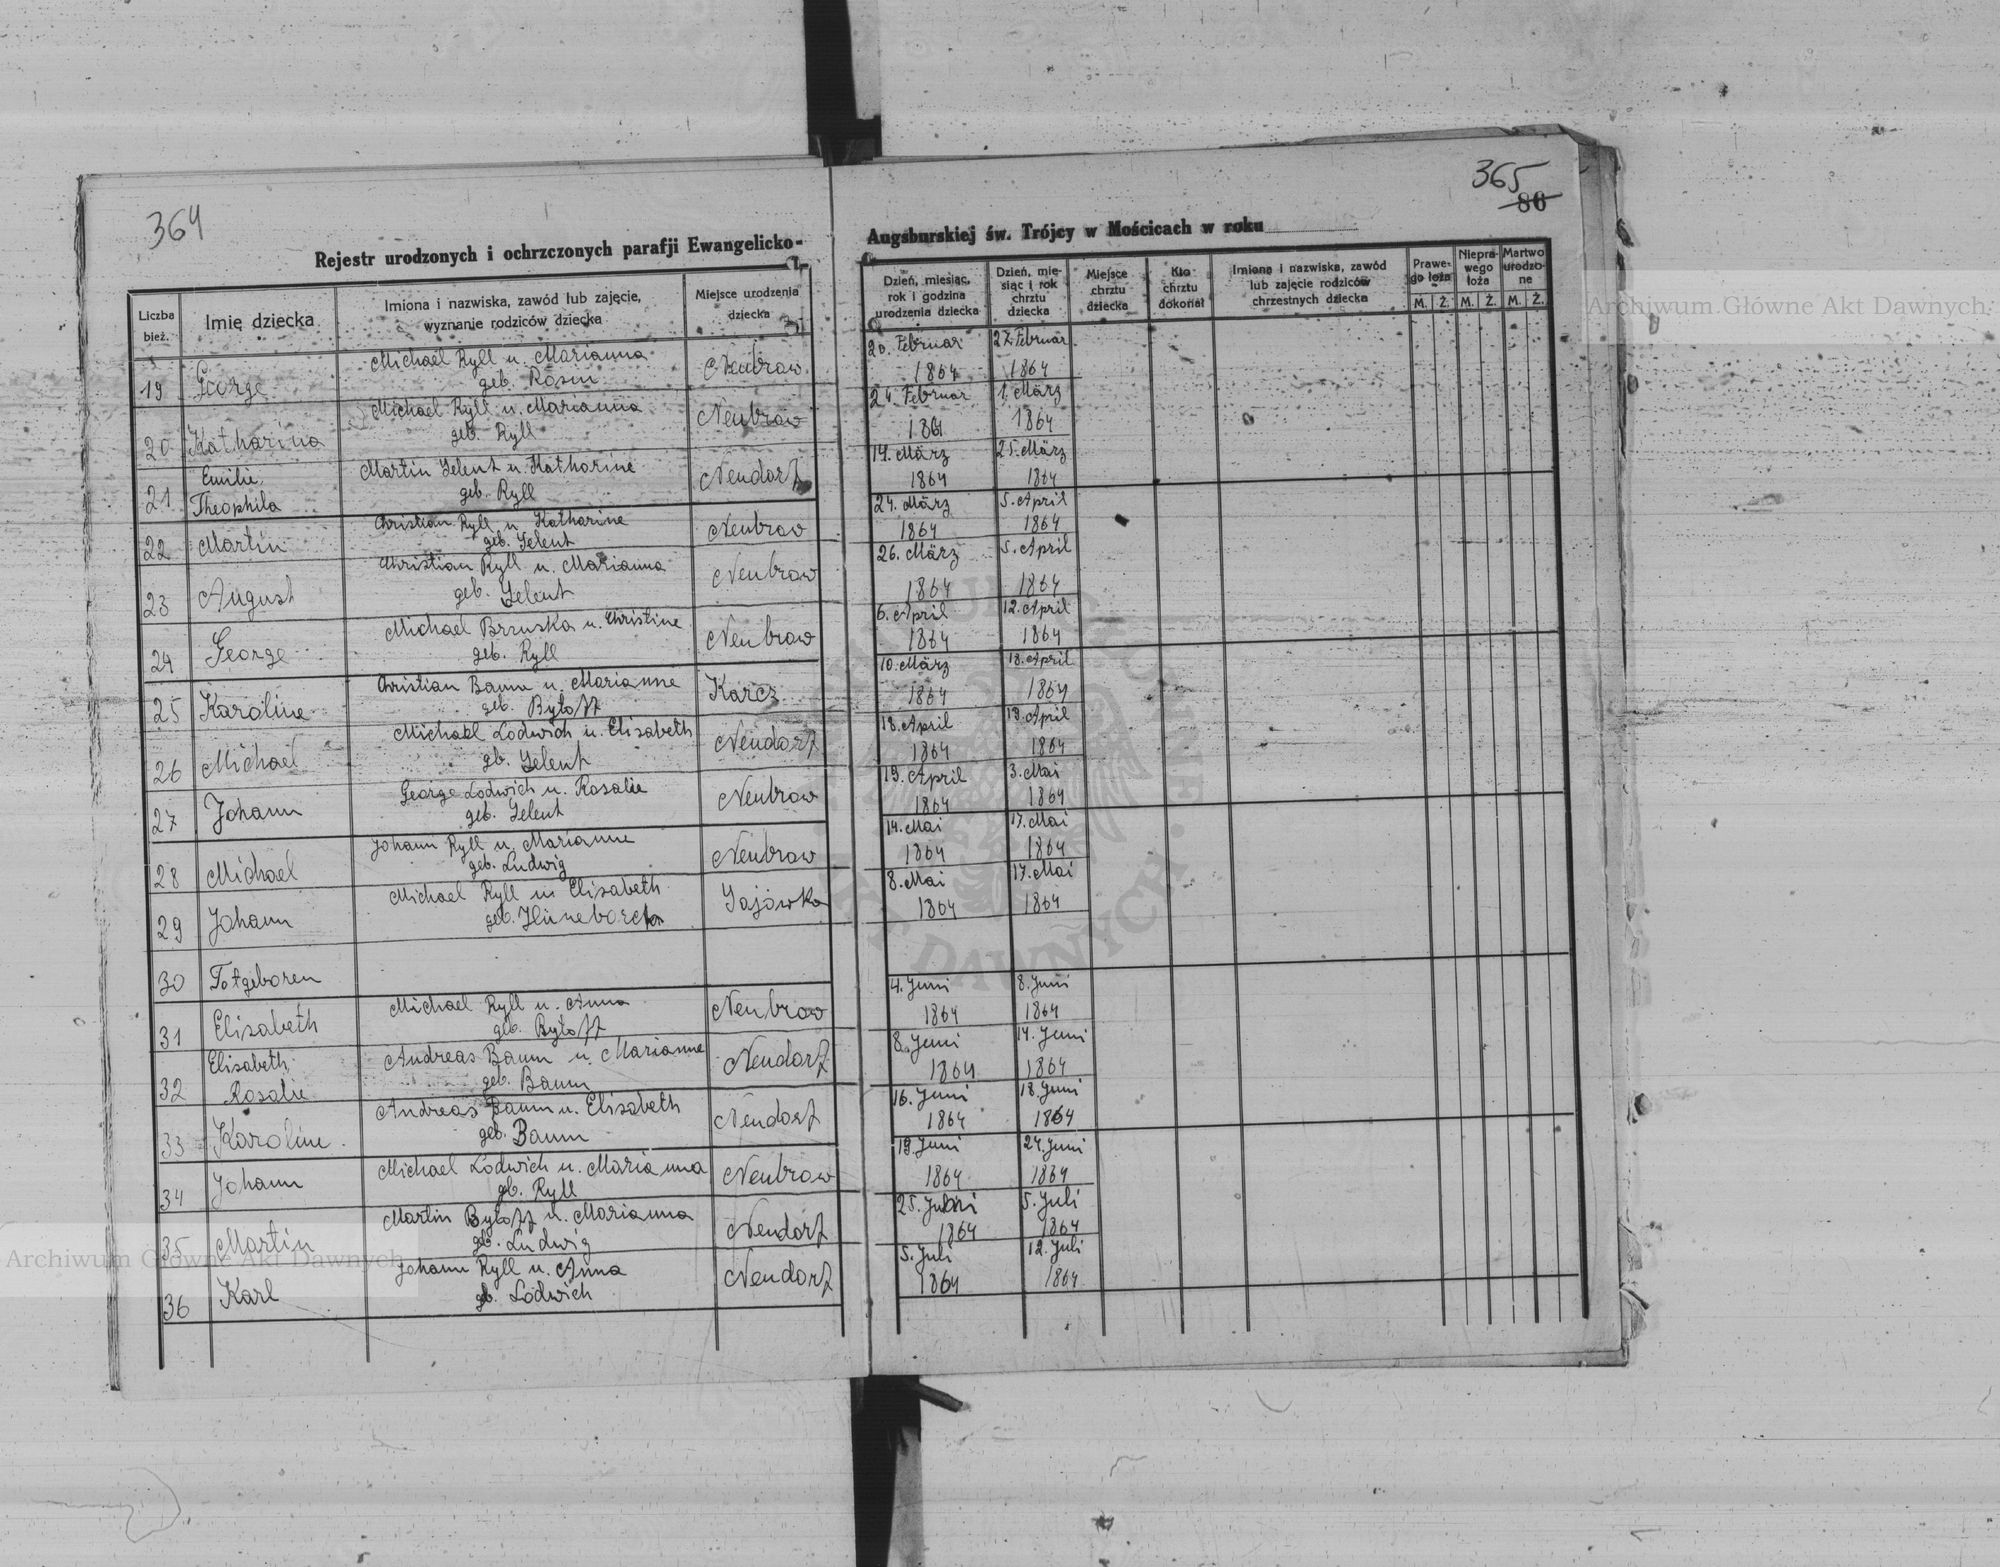 364
365
86
Rejestr urodzonych i ochrzczonych parafji Ewangelicko-
Augsburskiej św. Trójcy w Mościcach w roku
Liczba bież.
Imię dziecka
Imiona i nazwiska, zawód lub zajęcie, wyznanie rodziców dziecka
Miejsce urodzenia dziecka
Dzień, miesiąc, rok i godzina urodzenia dziecka
Dzień, miesiąc i rok chrztu dziecka
Miejsce chrztu dziecka
Kto chrztu dokonał
Imiona i nazwiska, zawód lub zajęcie rodziców chrzestnych dziecka
Prawego łoża
Nieprawego łoża
Martwo urodzone
M. Ż. M. Ż. M. Ż.
19 George Michael Ryll u. Marianna geb. Rosin Neubrow 20. Februar 1864 27. Februar 1864
20 Katharina Michael Ryll u. Marianna geb. Ryll Neubrow 24. Februar 1864 1. März 1864
21 Emilie, Theophila Martin Selent u. Katharine geb. Ryll Neudorf 14. März 1864 25. März 1864
22 Martin Christian Ryll u. Katharine geb. Selent Neubrow 24. März 1864 5. April 1864
23 August Christian Ryll u. Marianna geb. Selent Neubrow 26. März 1864 5. April 1864
24 George Michael Bzruska u. Christine geb. Ryll Neubrow 6. April 1864 12. April 1864
25 Karoline Christian Baum u. Marianne geb. Bytoff Karcz 10. März 1864 18. April 1864
26 Michael Michael Lodwich u. Elisabeth gb. Selent Neudorf 18. April 1864 19. April 1864
27 Johann George Lodwich u. Rosalie geb. Selent Neubrow 19. April 1864 3. Mai 1864
28 Michael Johann Ryll u. Marianne geb. Ludwig Neubrow 14. Mai 1864 17. Mai 1864
29 Johann Michael Ryll u. Elisabeth geb. Sajówka 8. Mai 1864 17. Mai 1864
30 Totgeboren
31 Elisabeth Michael Ryll u. Anna geb. Bytoff Neubrow 4. Juni 1864 8. Juni 1864
32 Elisabeth, Rosalie Andreas Baum u. Marianne geb. Baum Neudorf 8. Juni 1864 14. Juni 1864
33 Karoline Andreas Baum u. Elisabeth geb. Baum Neudorf 16. Juni 1864 18. Juni 1864
34 Johann Michael Lodwich u. Marianna gb. Ryll Neubrow 19. Juni 1864 24. Juni 1864
35 Martin Martin Bytoff u. Marianna gb. Ludwig Neudorf 25. Juni 1864 5. Juli 1864
36 Karl Johann Ryll u. Anna gb. Lodwich Neudorf 5. Juli 1864 12. Juli 1864
Archiwum Główne Akt Dawnych
Archiwum Główne Akt Dawnych